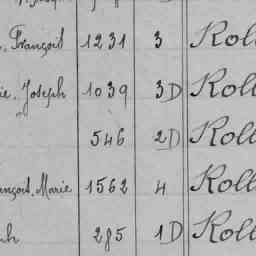 François 1231 3 Roll
ie. Joseph 1039 3D Roll
546 2D Roll
ançois. Marie 1562 4 Roll
ph 285 1D Roll